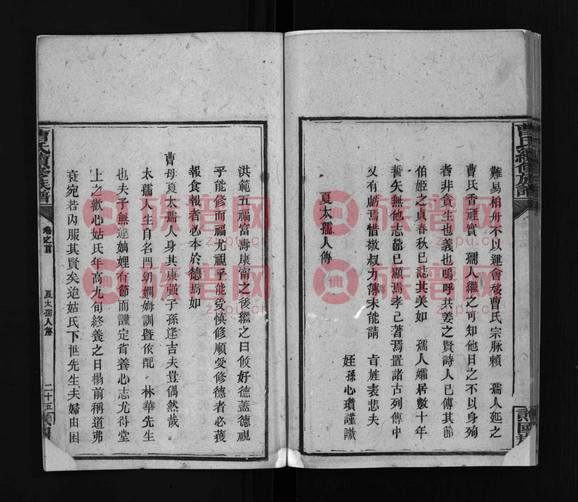 曹氏續修族譜
難易柏舟不以運會後曹氏宗脉賴 孺人延之
曹氏香禋實 孺人繼之可知他日之不以身殉
者非貪生也義也嗚呼共姜之賢詩人已傳其節
伯姬之貞春秋已誌其美如 孺人孀居數十年
誓矢無他志節已顯焉孝已著焉置諸古列傳中
又有歉焉惜撥叔力薄未能請 旌表悲夫
姪孫心瓚謹識
夏太孺人傳
洪範五福富壽康甯之後繼之曰攸好德蓋德視
乎能修而福尤視乎能受慎修順受修德者必獲
報食報者必本於德焉如
曹母夏太孺人身其康彊子孫逢吉夫豈偶然哉
太孺人生自名門幼嫻姆訓暨侬配 林華先生
也夫子無違娣娌有節而謹定省養心志尤得堂
上之歡心姑氏年高九旬終養之日榻前稱道弗
衰宛若內服其賢矣迨姑氏下世先生夫婦由困
曹氏續修族譜
卷之首
夏太孺人傳
二十五